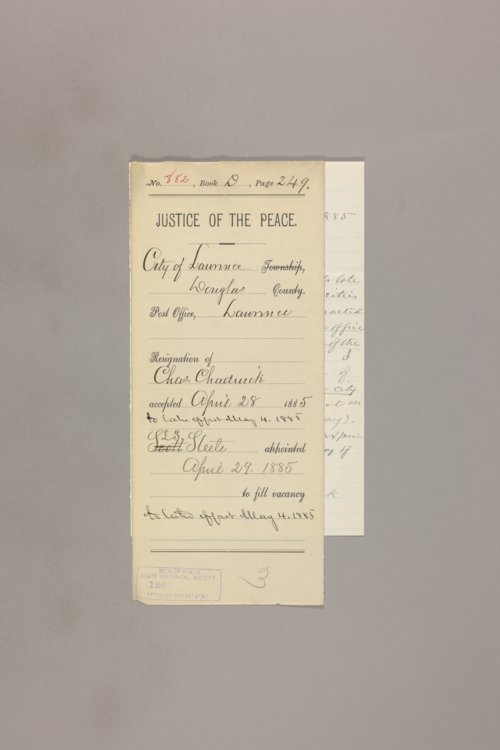 No. 882, Book D, Page 249.
JUSTICE OF THE PEACE.
City of Lawrence Township,
Douglas County.
Post Office, Lawrence
Resignation of
Chas. Chadwick
accepted April 28 1885
to take effect May 4. 1885
Scott Steele appointed
April 29. 1885
to fill vacancy
to take effect May 4. 1885
3
KANSAS
STATE HISTORICAL SOCIETY.
ARCHIVES DEPARTMENT.
885
to late
cities
office
of the
I
of
city
of
k